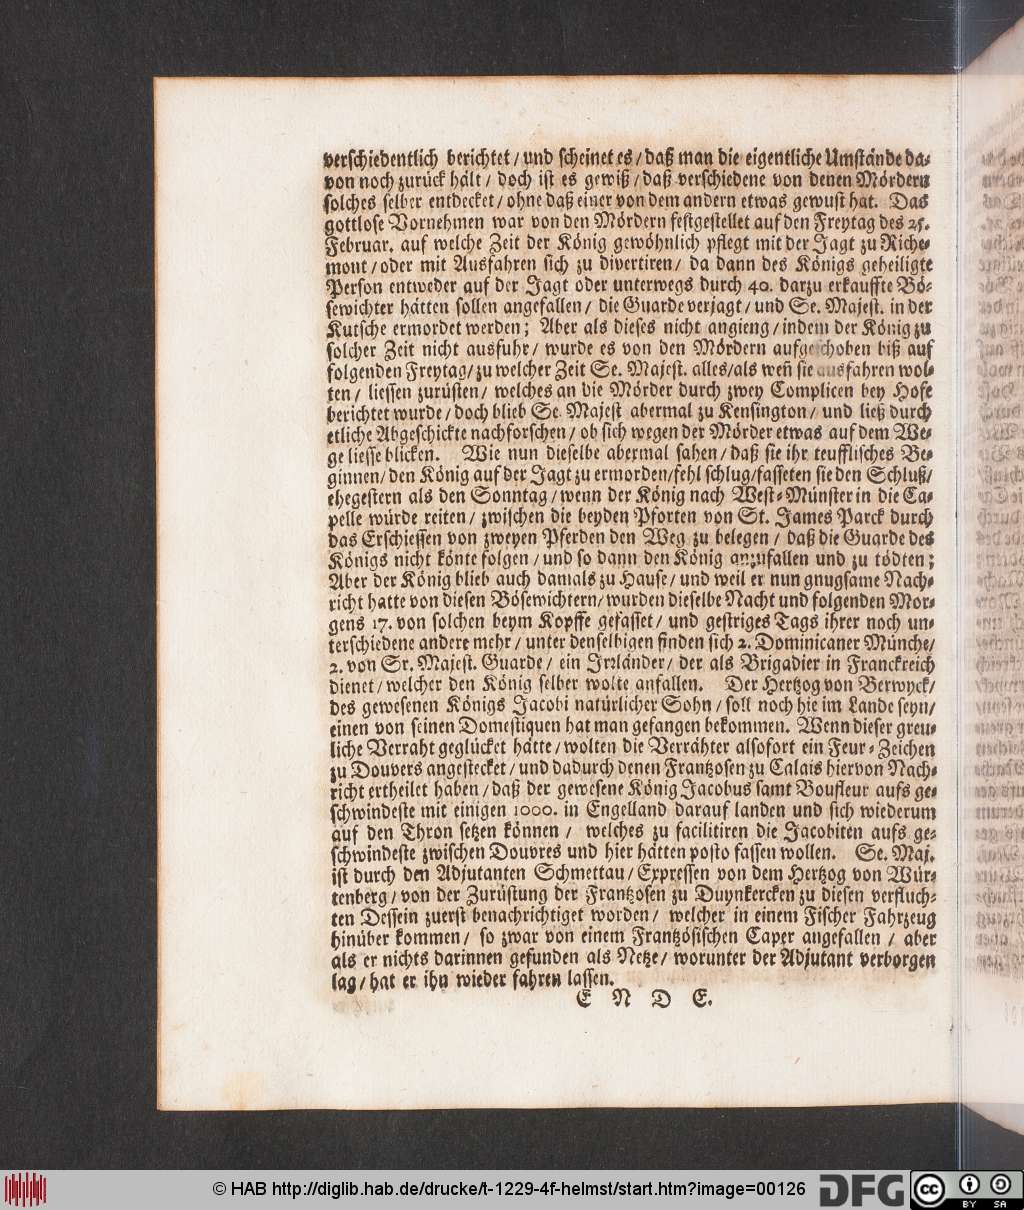 verschiedentlich berichtet / und scheinet es / daß man die eigentliche Umstände da-
von noch zurück hält / doch ist es gewiß / daß verschiedene von denen Mördern
solches selber entdecket / ohne daß einer von dem andern etwas gewust hat. Das
gottlose Vornehmen war von den Mördern festgestellet auf den Freytag des 25.
Februar. auf welche Zeit der König gewöhnlich pflegt mit der Jagt zu Riche-
mont / oder mit Ausfahren sich zu divertiren / da dann des Königs geheiligte
Person entweder auf der Jagt oder unterwegs durch 40. darzu erkauffte Bö-
sewichter hätten sollen angefallen / die Guarde verjagt / und Se. Majest. in der
Kutsche ermordet werden; Aber als dieses nicht angieng / indem der König zu
solcher Zeit nicht ausfuhr / wurde es von den Mördern aufgeschoben biß auf
folgenden Freytag / zu welcher Zeit Se. Majest. alles / als weñ sie ausfahren wol-
ten / liessen zurüsten / welches an die Mörder durch zwey Complicen bey Hofe
berichtet wurde / doch blieb Se. Majest abermal zu Kensington / und ließ durch
etliche Abgeschickte nachforschen / ob sich wegen der Mörder etwas auf dem We-
ge liesse blicken. Wie nun dieselbe abermal sahen / daß sie ihr teufflisches Be-
ginnen / den König auf der Jagt zu ermorden / fehl schlug / fasseten sie den Schluß /
ehegestern als den Sonntag / wenn der König nach West-Münster in die Ca-
pelle würde reiten / zwischen die beyden Pforten von St. James Parck durch
das Erschiessen von zweyen Pferden den Weg zu belegen / daß die Guarde des
Königs nicht könte folgen / und so dann den König anzufallen und zu tödten;
Aber der König blieb auch damals zu Hause / und weil er nun gnugsame Nach-
richt hatte von diesen Bösewichtern / wurden dieselbe Nacht und folgenden Mor-
gens 17. von solchen beym Kopffe gefasset / und gestriges Tags ihrer noch un-
terschiedene andere mehr / unter denselbigen finden sich 2. Dominicaner Münche /
2. von Sr. Majest. Guarde / ein Irrländer / der als Brigadier in Franckreich
dienet / welcher den König selber wolte anfallen. Der Hertzog von Berwyck /
des gewesenen Königs Jacobi natürlicher Sohn / soll noch hie im Lande seyn /
einen von seinen Domestiquen hat man gefangen bekommen. Wenn dieser greu-
liche Verraht geglücket hätte / wolten die Verrähter alsofort ein Feur-Zeichen
zu Douvers angestecket / und dadurch denen Frantzosen zu Calais hiervon Nach-
richt ertheilet haben / daß der gewesene König Jacobus samt Boufleur aufs ge-
schwindeste mit einigen 1000. in Engelland darauf landen und sich wiederum
auf den Thron setzen können / welches zu facilitiren die Jacobiten aufs ge-
schwindeste zwischen Douvres und hier hätten posto fassen wollen. Se. Maj.
ist durch den Adjutanten Schmettau / Expressen von dem Hertzog von Wür-
tenberg / von der Zurüstung der Frantzosen zu Duynkercken zu diesen verfluch-
ten Dessein zuerst benachrichtiget worden / welcher in einem Fischer Fahrzeug
hinüber kommen / so zwar von einem Frantzösischen Caper angefallen / aber
als er nichts darinnen gefunden als Netze / worunter der Adjutant verborgen
lag / hat er ihn wieder fahren lassen.
E N D E.
© HAB http://diglib.hab.de/drucke/t-1229-4f-helmst/start.htm?image=00126
DFG
cc BY SA